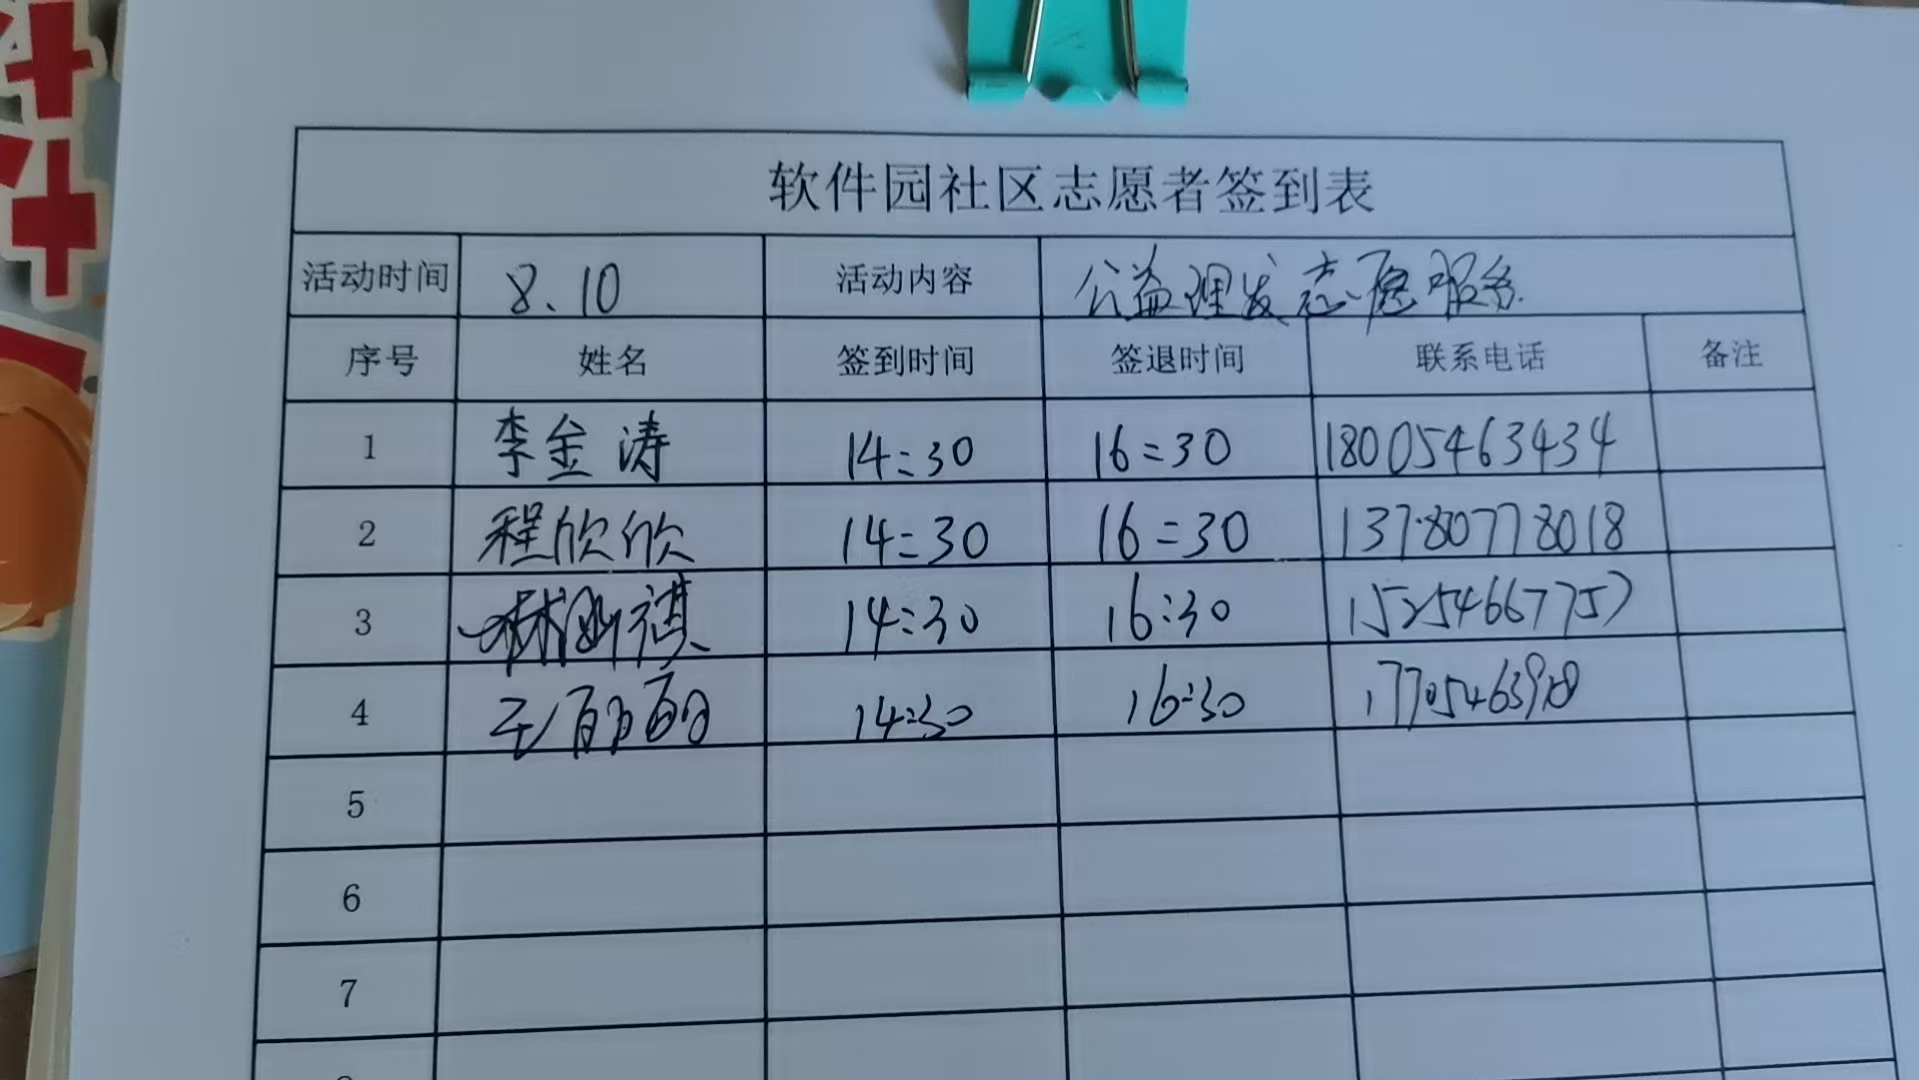 软件园社区志愿者签到表
活动时间 8.10 活动内容 公益理发志愿服务
序号 姓名 签到时间 签退时间 联系电话 备注
1 李金涛 14:30 16:30 18005463434
2 程欣欣 14:30 16:30 13780778018
3 14:30 16:30 15254667757
4 14:30 16:30
5
6
7